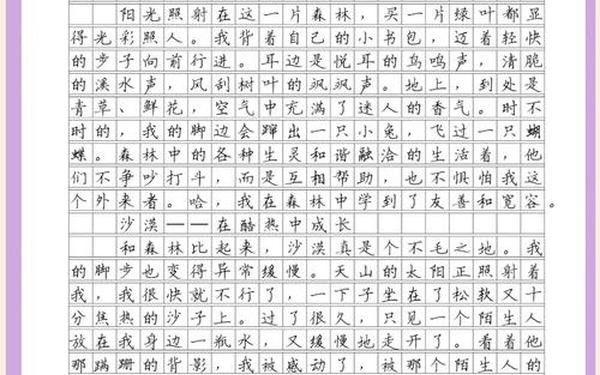 阳光照射在这一片森林，买一片绿叶都显
得光彩照人。我背着自己的小书包，迈着轻快
的步子向前行进。耳边是悦耳的鸟鸣声，清脆
的溪水声，风刮树叶的飒飒声。地上，到处是
青草、鲜花，空气中充满了迷人的香气。时不
时的，我的脚边会蹿出一只小兔，飞过一只蝴
蝶。森林中的各种生灵和谐融洽的生活着，他
们不争吵打斗，而是互相帮助，也不惧怕我这
个外来者。哈，我在森林中学到了友善和宽容。
沙漠——在酷热中成长
和森林比起来，沙漠真是个不毛之地。我
的脚步也变得异常缓慢。天山的太阳正照射着
我，我很快就不行了，一下子坐在了松软又十
分焦热的沙子上。过了很久，只见一个陌生人
放在我身边一瓶水，又缓慢地走开了。看着他
那蹒跚的背影，我被感动了，被那个陌生人的